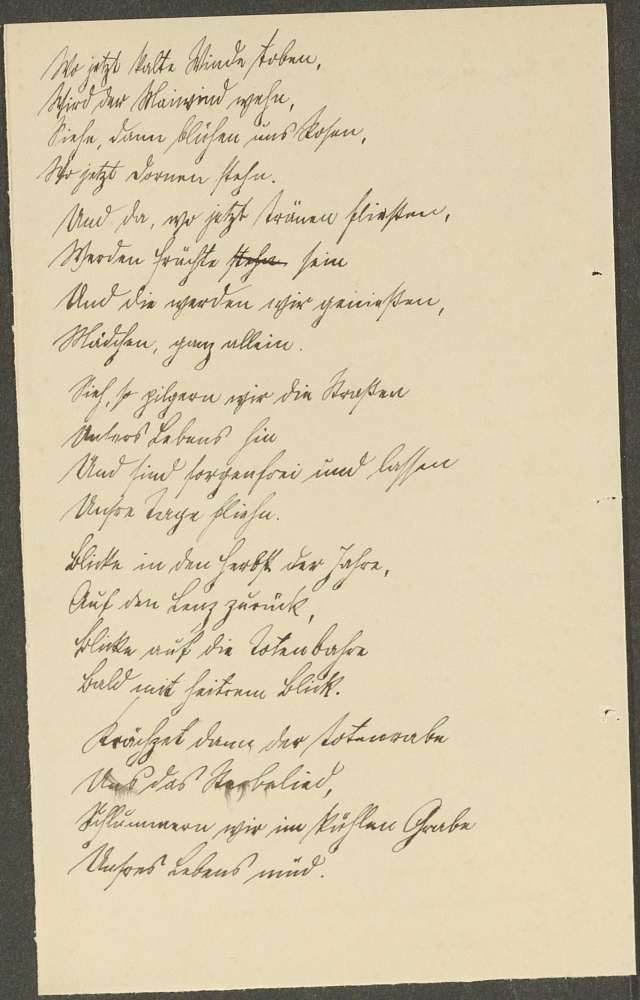 Wo jetzt kalte Winde toben,
Wird der Maiwind wehn,
Siehe, dann blühen uns Rosen,
Wo jetzt Dornen stehn.
Und da, wo jetzt Tränen fließen,
Werden Früchte stehn sein
Und die werden wir genießen,
Mädchen, ganz allein.
Sieh, so pilgern wir die Straßen
Unsers Lebens hin
Und sind sorgenfrei und lassen
Unsre Tage fliehn.
Blicke in den Herbst der Jahre,
Auf den Lenz zurück,
Blicke auf die Totenbahre
Bald mit heitrem Blick.
Krächzet dann der Totenrabe
Uns das Sterbelied,
Schlummern wir im kühlen Grabe
Unsres Lebens müd.